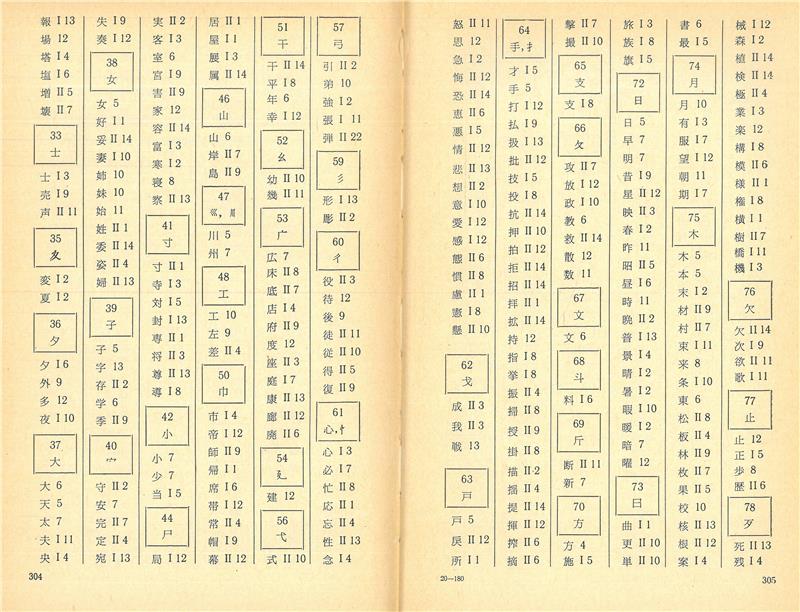 報 I 13
場 12
塔 I 4
塩 I 6
増 II 5
壊 II 7
33
士
士 I 3
売 I 9
声 II 11
35
夊
変 I 2
夏 I 2
36
夕
夕 I 6
外 9
多 12
夜 I 10
37
大
大 6
天 5
太 7
夫 I 11
央 I 4
失 I 9
奏 I 12
38
女
女 5
好 I 1
妥 II 14
妻 I 10
姉 10
妹 10
始 11
姓 II 1
委 II 14
姿 II 4
婦 II 13
39
子
子 5
字 13
存 II 2
学 6
季 II 9
40
宀
守 II 2
安 7
完 II 7
定 II 4
宛 I 13
実 II 2
客 I 3
室 6
宮 I 9
害 II 9
家 12
容 II 14
富 I 3
寒 I 2
寝 8
察 II 13
41
寸
寸 II 1
寺 I 3
対 I 5
封 I 13
専 II 1
将 II 3
尊 II 13
導 I 8
42
小
小 7
少 7
当 I 5
44
尸
局 I 12
居 II 1
屋 I 1
展 I 3
属 II 14
46
山
山 6
岸 II 7
島 II 9
47
巛, 川
川 5
州 7
48
工
工 10
左 9
差 II 4
50
巾
市 I 4
帝 I 12
師 II 9
帰 I 1
席 I 6
帯 I 12
常 II 4
帽 I 9
幕 II 12
51
干
干 II 14
平 I 8
年 6
幸 I 12
52
幺
幼 II 10
幾 II 11
53
广
広 7
床 II 8
底 II 7
店 I 4
府 II 9
度 12
座 II 3
庭 I 7
康 II 13
廊 II 12
廃 II 6
54
廴
建 12
56
弋
式 II 10
57
弓
引 II 2
弟 10
強 I 2
張 I 11
弾 II 22
59
彡
形 I 13
彫 II 2
60
彳
役 II 3
待 12
後 9
徒 II 11
従 II 10
得 II 5
復 II 9
61
心,忄
心 I 3
必 I 7
忙 II 8
応 II 1
忘 II 4
性 II 13
念 I 4
304
怒 II 11
思 12
急 I 2
悔 II 12
恐 II 14
恵 II 6
悪 I 5
情 II 12
悲 II 13
想 II 2
意 I 10
愛 I 12
感 I 12
態 II 6
慣 II 8
慮 II 1
憲 I 8
懸 II 10
62
戈
成 II 3
我 II 3
戦 13
63
戸
戸 5
戻 II 12
所 I 1
64
手,扌
才 I 5
手 5
打 I 12
払 I 9
扱 I 13
批 II 12
技 I 5
投 I 8
抗 II 14
押 II 10
拍 II 12
拒 II 14
招 II 14
拝 II 1
拡 II 14
持 12
指 I 8
挙 I 8
振 II 4
掃 II 8
授 II 9
掛 II 8
描 II 2
揺 II 4
提 II 14
揮 II 12
搾 II 6
摘 II 6
撃 II 7
撮 II 10
65
支
支 I 8
66
攵
攻 II 7
放 I 12
政 I 10
教 6
救 II 14
散 12
数 11
67
文
文 6
68
斗
料 I 6
69
斤
断 II 11
新 7
70
方
方 4
施 I 5
旅 I 3
族 I 8
旗 I 5
72
日
日 5
早 7
明 7
昔 I 9
星 II 12
映 II 3
春 I 2
昨 11
昭 II 5
昼 I 6
時 11
晩 II 2
普 I 13
景 I 4
晴 I 2
暑 I 2
暇 I 10
暖 I 2
暗 7
曜 12
73
曰
曲 I 1
更 II 10
単 II 10
書 6
最 I 5
74
月
月 10
有 I 3
服 I 7
望 I 12
朝 11
期 I 7
75
木
木 5
本 5
末 I 2
材 II 9
村 II 7
束 I 11
来 8
条 I 10
東 6
松 II 8
板 II 4
林 II 9
枚 II 7
果 II 5
校 10
核 II 13
根 II 12
案 I 4
械 I 12
森 I 2
植 II 14
検 II 14
極 II 4
業 I 3
楽 12
構 I 8
模 II 6
様 II 1
権 I 8
横 I 1
樹 II 7
橋 I 11
機 I 3
76
欠
欠 II 14
次 I 9
欲 II 11
歌 I 11
77
止
止 12
正 I 5
歩 8
歴 II 6
78
歹
死 II 13
残 I 4
20—180
305